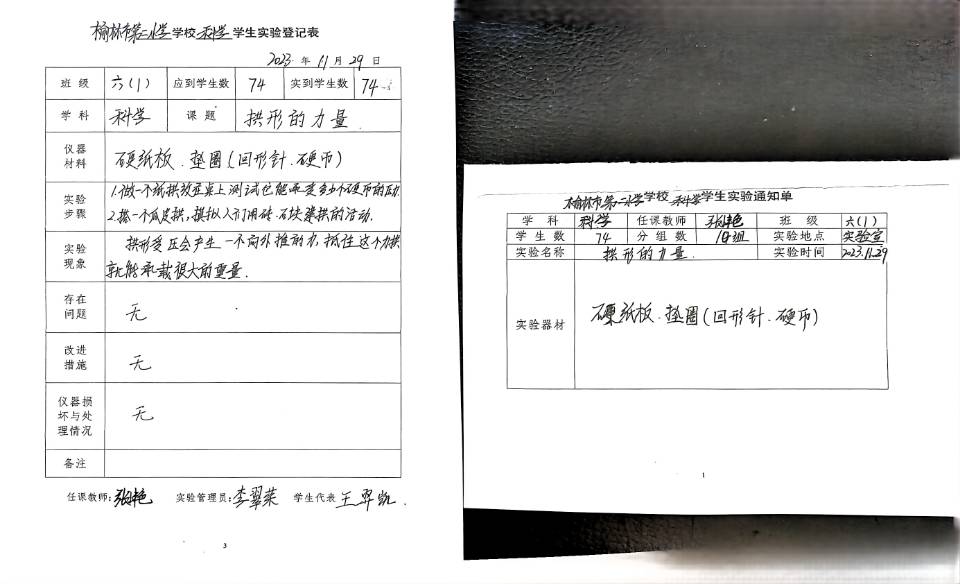 榆林市第二小学学校科学学生实验登记表
2023年11月29日
班级 六(1) 应到学生数 74 实到学生数 74
学科 科学 课题 拱形的力量
仪器材料 硬纸板.垫圈(回形针.硬币)
实验步骤 1.做一个纸拱放在桌上测试它能承受多少个硬币的压力
2.搭一个瓜皮拱,模拟人们用砖.石块筑拱的活动.
实验现象 拱形受压会产生一个向外推的力,抵住这个力拱
就能承载很大的重量.
存在问题 无
改进措施 无
仪器损坏与处理情况 无
备注
任课教师: 实验管理员:李翠荣 学生代表 王羿凯.
3
榆林市第二小学学校科学学生实验通知单
学科 科学 任课教师 班级 六(1)
学生数 74 分组数 18组 实验地点 实验室
实验名称 拱形的力量. 实验时间 2023.11.29
实验器材 硬纸板.垫圈(回形针.硬币)
1